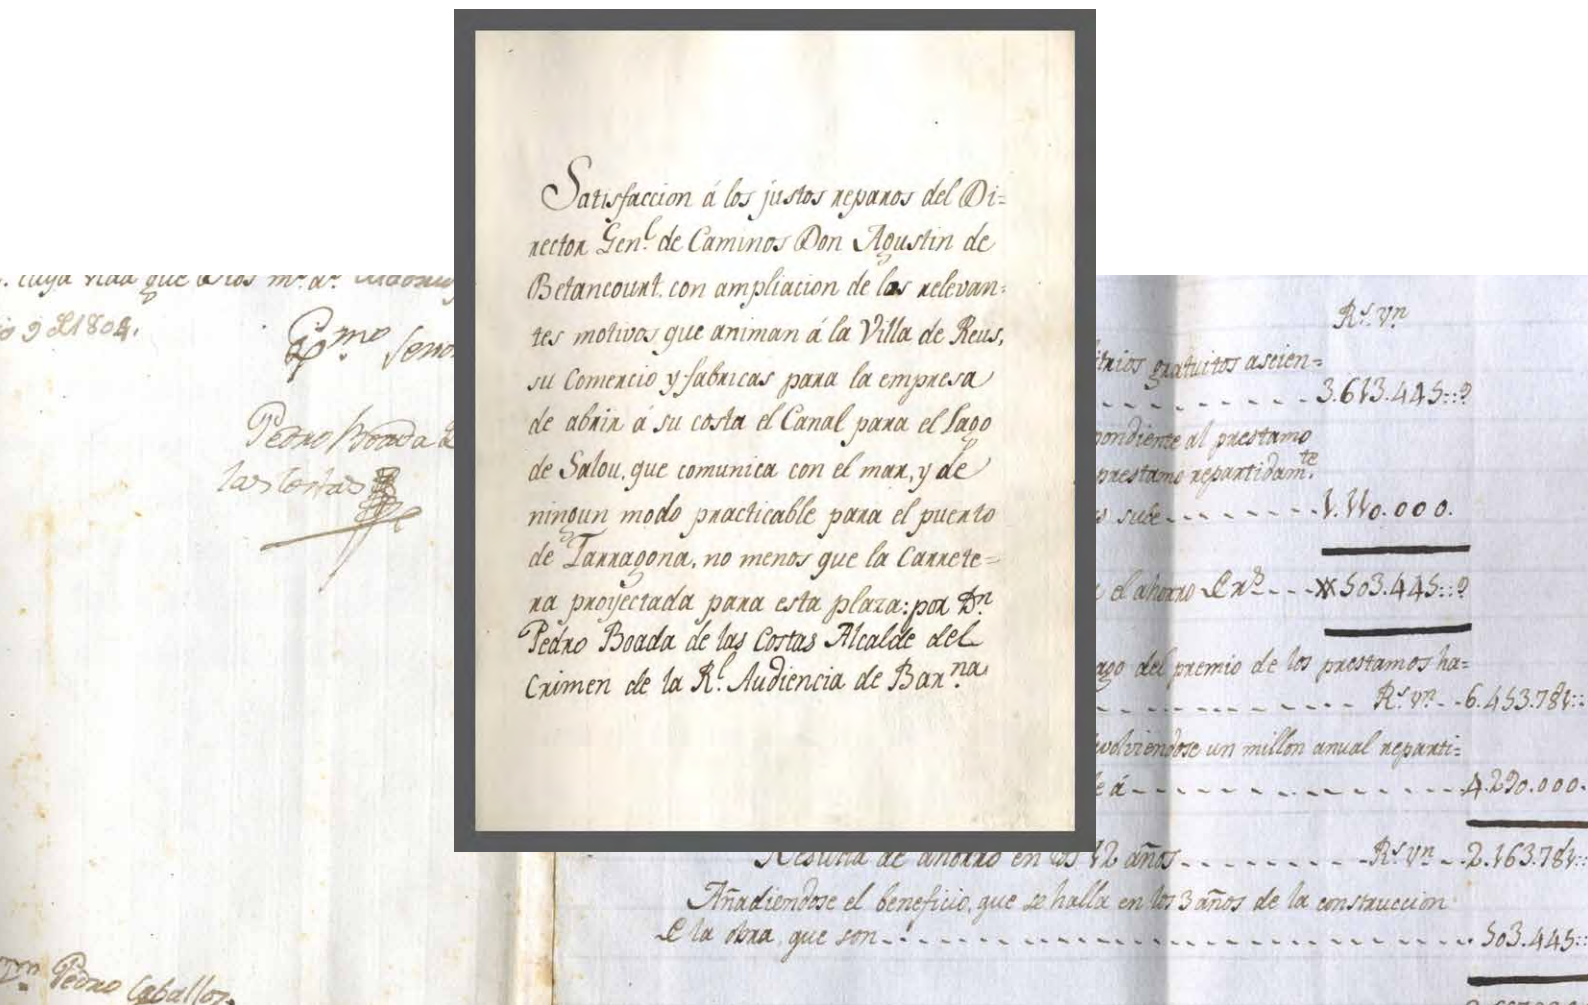 Satisfaccion á los justos reparos del Di=
rector Gen.l de Caminos Don Agustin de
Betancourt, con ampliacion de los relevan=
tes motivos que animan á la Villa de Reus,
su Comercio y fabricas para la empresa
de abrir á su costa el Canal para el Lago
de Salou, que comunica con el mar, y de
ningun modo practicable para el puerto
de Tarragona, no menos que la Carrete=
ra proyectada para esta plaza: por Dn
Pedro Boada de las Costas Alcalde del
Crimen de la R.l Audiencia de Bar.na
cuya vida que Dios m.s a.s
1804.
Señor
Pedro Boada de
las Costas
Pedro Caballos.
R.s vn
gratuitos ascien=
3.613.445::
pondiente al prestamo
prestamo repartidam.te
sube 1.110.000.
el ahorro 503.445::
pago del premio de los prestamos ha=
R.s vn 6.453.781::
volviendose un millon anual reparti=
á 4.290.000.
Resulta de ahorro en los 12 años R.s vn 2.163.781::
Añadiendose el beneficio, que se halla en los 3 años de la construccion
la obra, que son 503.445::